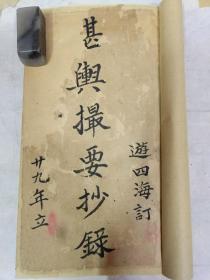 遊四海訂
甚輿撮要抄錄
廿九年立